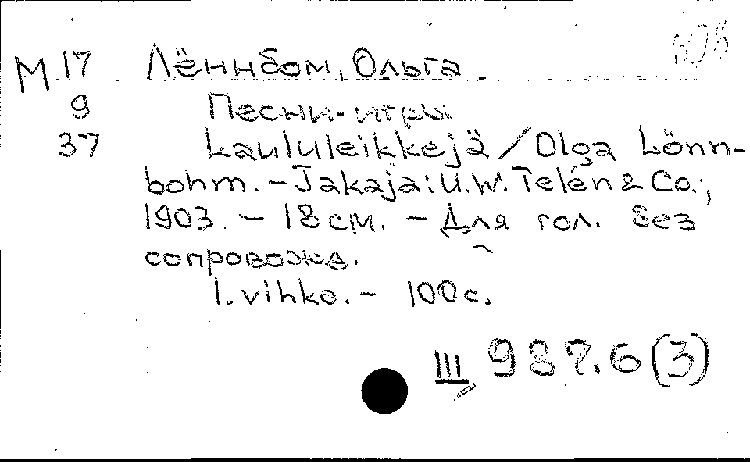 М 17 Лённбом, Ольга
9 Песни-игры
37 Laululeikkejä / Olga Lönn-
bohm. - Jakaja: U.W. Telén & Co.,
1903. - 18 см. - Для гол. без
сопровожд.
1. vihko. - 100 с.
III 987.6(3)